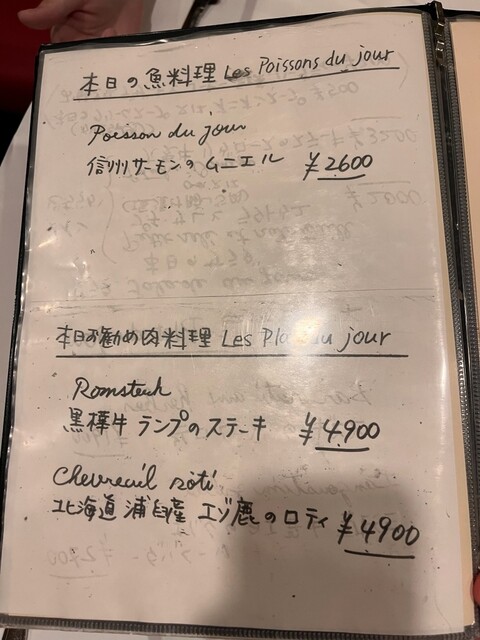 本日の魚料理 Les Poissons du jour
Poisson du jour
信州サーモンのムニエル ¥2600
本日お勧め肉料理 Les Pla du jour
Romsteck
黒樺牛 ランプのステーキ ¥4900
Chevreuil roti
北海道 浦臼産 エゾ鹿のロティ ¥4900